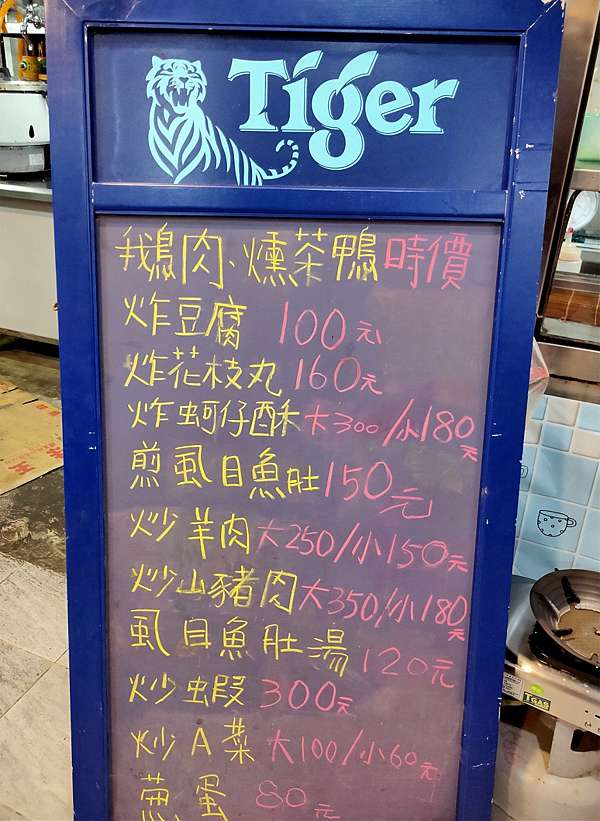 Tiger
鵝肉、燻茶鴨時價
炸豆腐 100元
炸花枝丸160元
炸蚵仔酥大300/小180元
煎虱目魚肚150元
炒羊肉大250/小150元
炒山豬肉大350/小180元
虱目魚肚湯120元
炒蝦300元
炒A菜 大100/小60元
蔥蛋 80元
TGAS